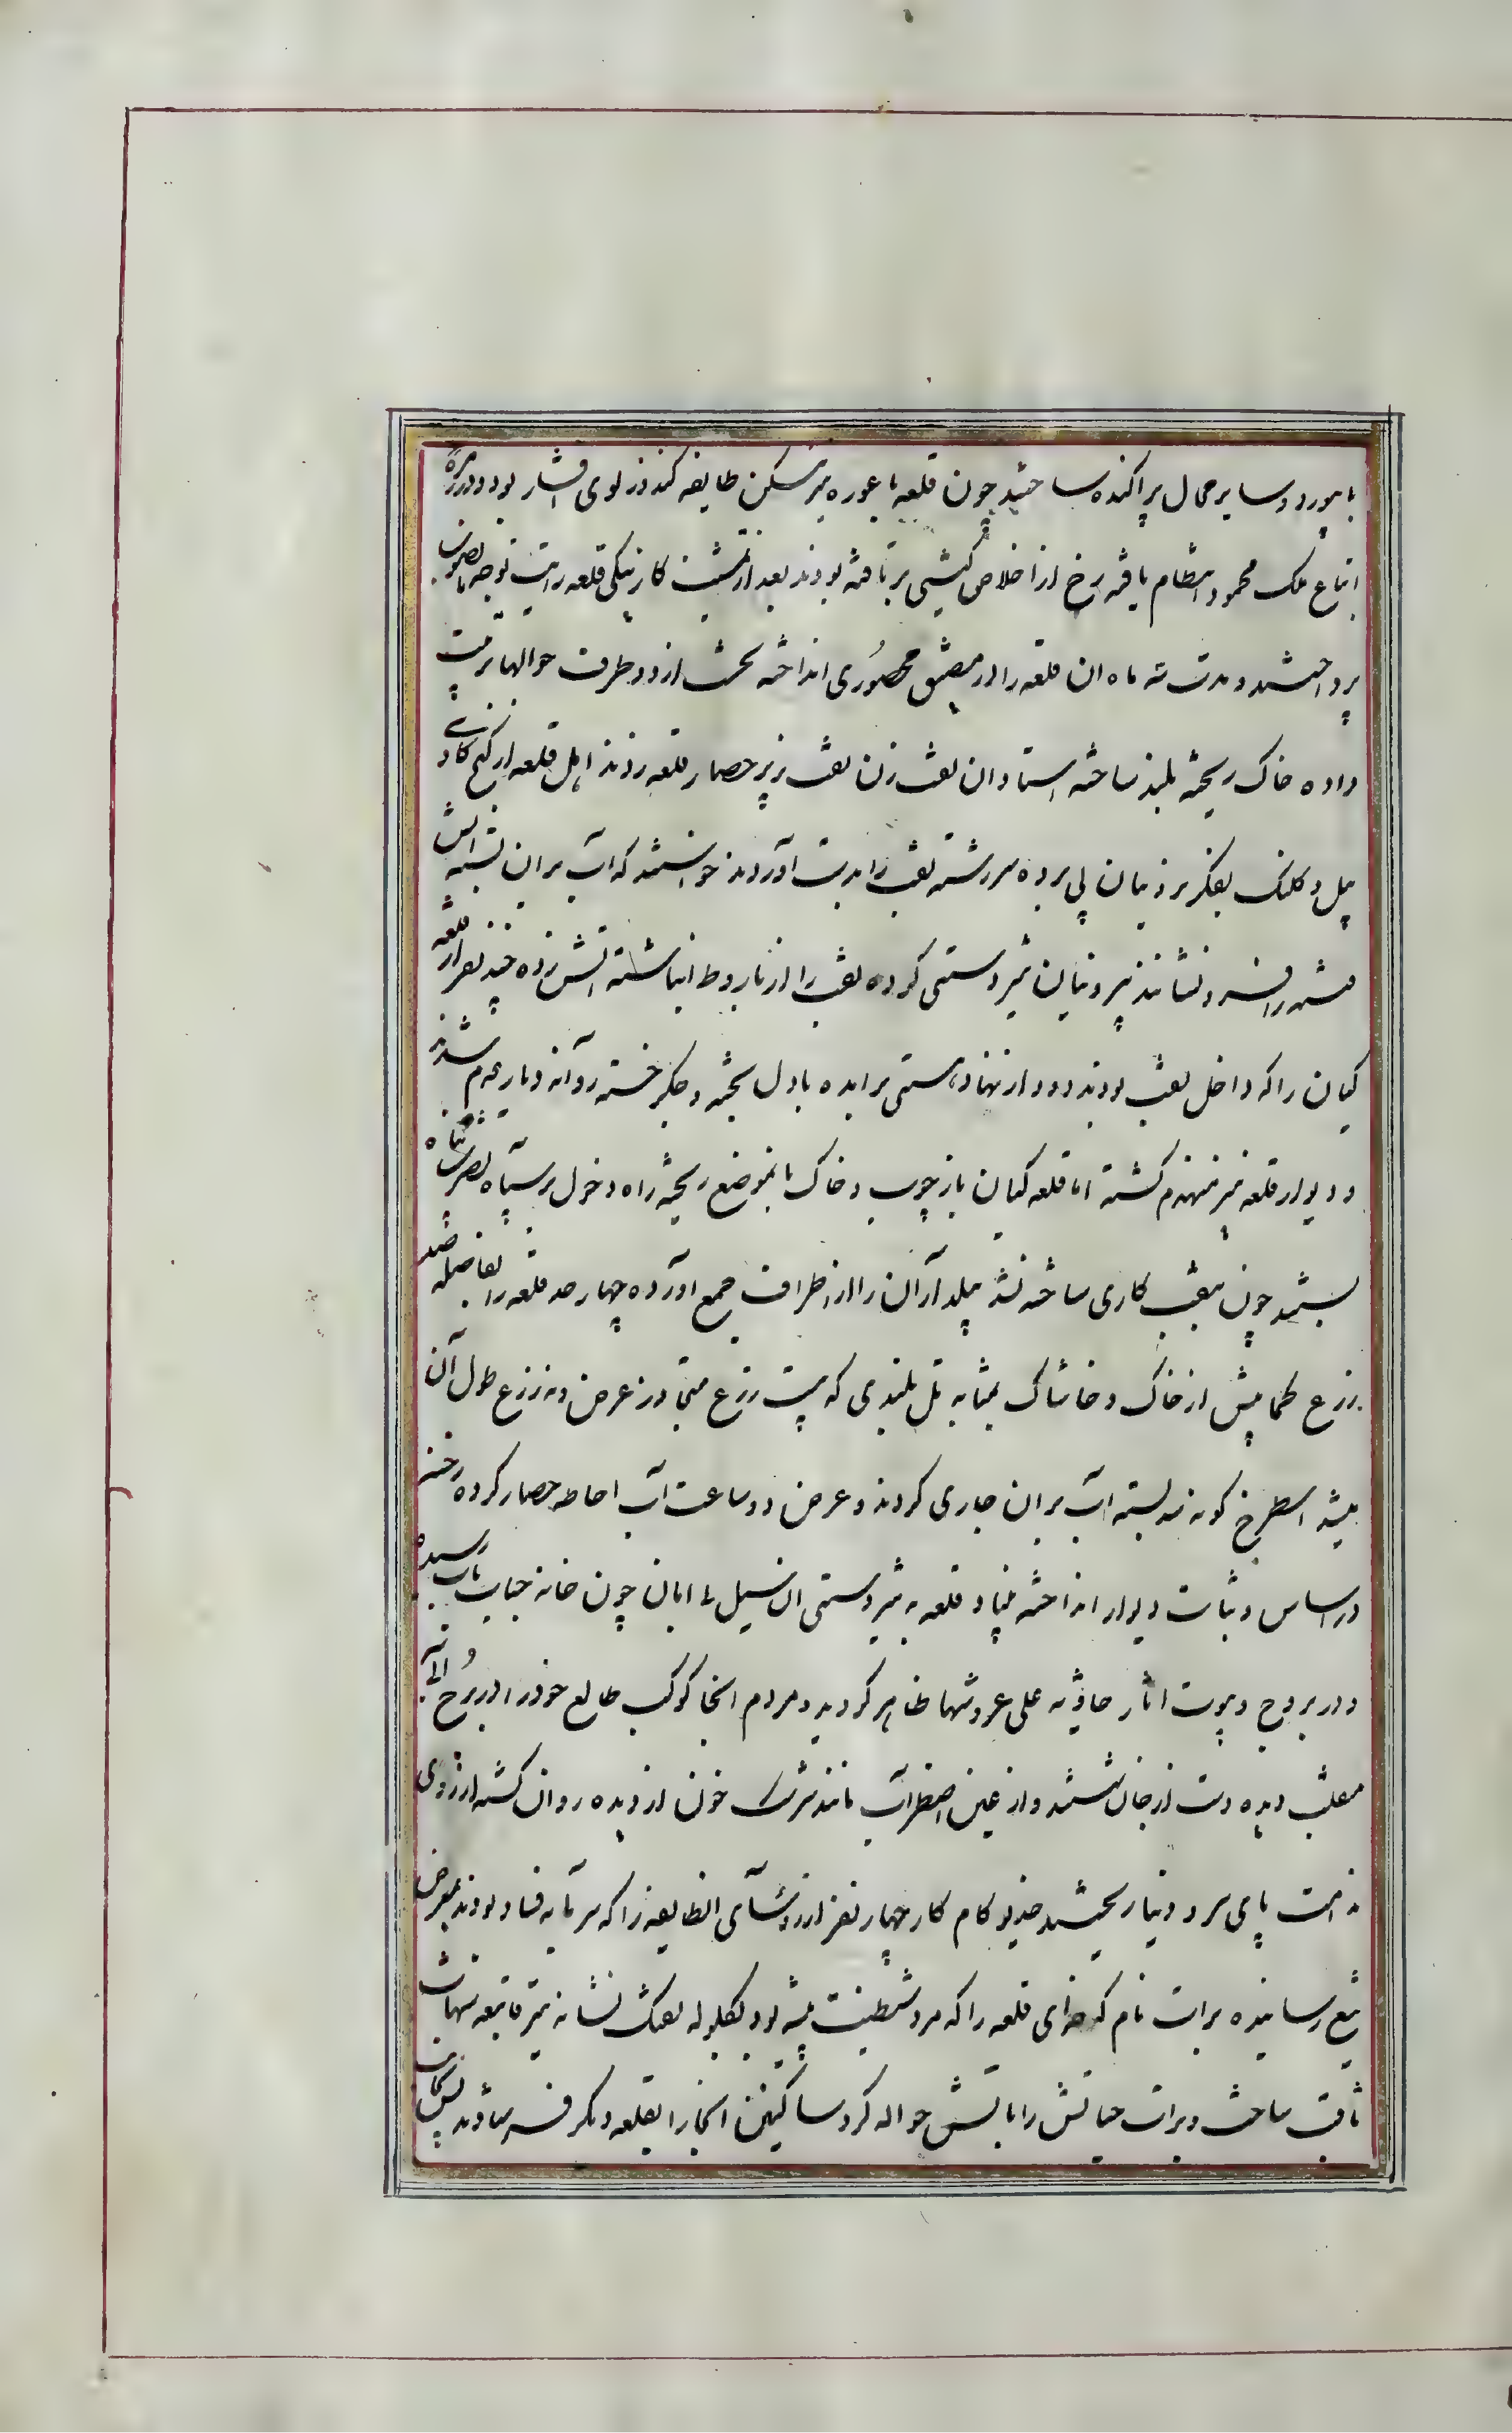 بابیورد و سایر محال پراکنده ساختند چون قلعه باغوره نیز مسکن طایفه کندوزلوی افشار بود و در زمرهٔ
اتباع ملک محمود انتظام یافته رخ از اخلاص کیشی برتافته بودند بعد از تمشیت کار نیکی قلعه رایت توجه بانصوب
پرداختند و مدت سه ماه ان قلعه را در مضیق محصوری انداخته نخست از دو طرف حوالها ترتیب
داده خاک ریخته بلند ساخته استادان نقب زن نقب بزیر حصار قلعه زدند اهل قلعه از کنج کاوی
بیل و کلنک بفکر بروزنیان پی برده سر رشته نقب را بدست آوردند خواستند که آب بر ان بسته آتش
فتنه را فرو نشانند بیرونیان تیز دستی کرده نقب را از باروط انباشته آتش زده چند نفر از قلعه
کیان را که داخل نقب بودند دود از نهاد هستی برامده با دل پخته و جکر خسته روانه دیار عدم شدند
و دیوار قلعه نیز منهدم کشته اما قلعه کیان باز چوب و خاک بانموضع ریخته راه دخول بر سپاه نصرت پناه
بستند چون بنقب کاری ساخته نشد بیلداران را از اطراف جمع آورده چهار حد قلعه را بفاصله صد
زرع کمابیش از خاک و خاشاک بمثابه تل بلندی که بیست زرع متجاوز عرض و نه زرع طول آن
میشد اسطرخ کونه سد بسته آب بر ان جاری کردند و عرض دو ساعت آب احاطه حصار کرده رخنه
در اساس و ثبات دیوار انداخته بنیاد قلعه به تیز دستی ان سیل بی امان چون خانه حباب بآب رسیده
و در بروج و بیوت اثار خاویه علی عروشها ظاهر کردید و مردم انجا کوکب طالع خود را در برج آبی
منقلب دیده دست از جان شستند و از عین اضطراب مانند سرشک خون از دیده روان کشته از روی
ندامت پای سر و دنیا ریختند خدیو کام کار چهار نفر از رؤسای انطایفه را که سرمایه فساد بودند بمعرض
تیغ رسانیده برات نام کدخدای قلعه را که مرد شیطنت پیشه بود بکلوله تفنک نشانه تیر فاتبعه شهاب
ثاقب ساخت و برات حیاتش را باتش حواله کرد ساکنین انجا را بقلعه دیکر فرستادند پس بجانب